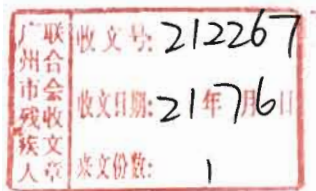 广州市残疾人
联合会收文章
收文号: 212267
收文日期: 21年7月6日
来文份数: 1